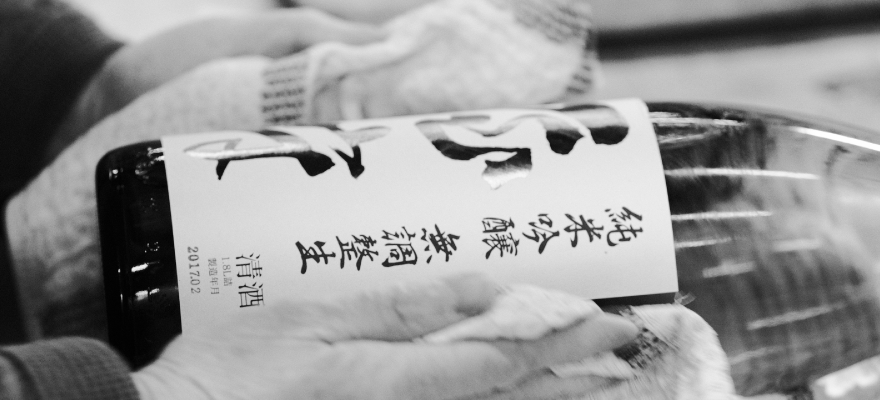 純米吟醸
無調整生
清酒
1.8L詰
製造年月
2017.02